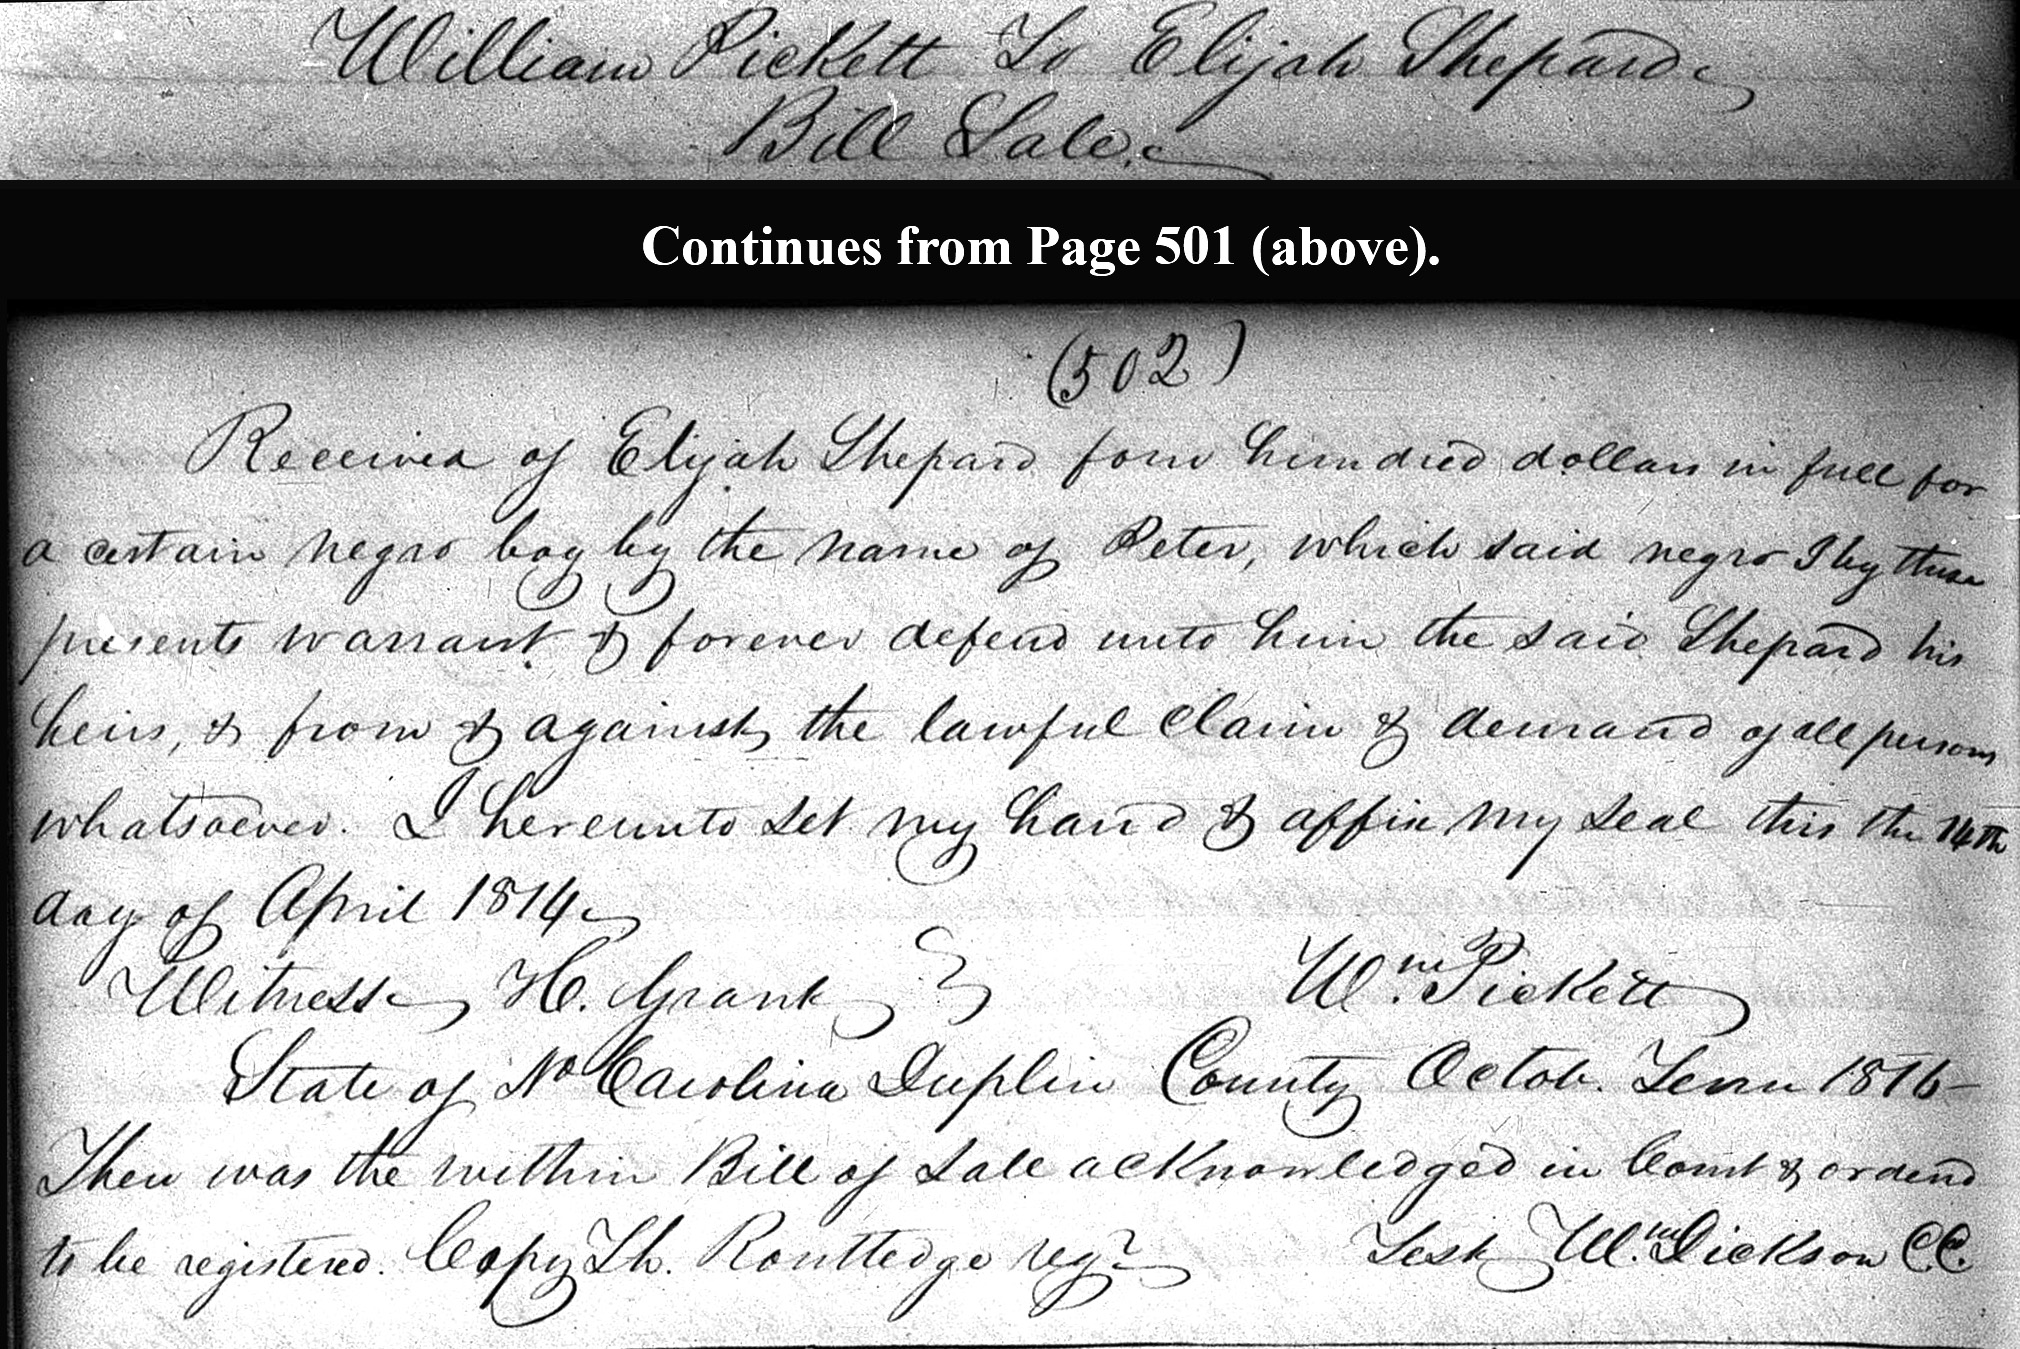 William Pickett To Elijah Shepard
Bill Sale.
Continues from Page 501 (above).
(502)
Received of Elijah Shepard four hundred dollars in full for
a certain negro boy by the name of Peter, which said negro I by these
presents warrant & forever defend unto him the said Shepard his
heirs, & from & against the lawful claim & demand of all persons
whatsoever. I hereunto set my hand & affix my seal this the 14th
day of April 1814
Witness H. Grant Wm. Pickett
State of No Carolina Duplin County Octob. Term 1816
Then was the within Bill of Sale acknowledged in Court & ordend
to be registered. Copy Th. Routledge regr Test Wm. Dickson CC.